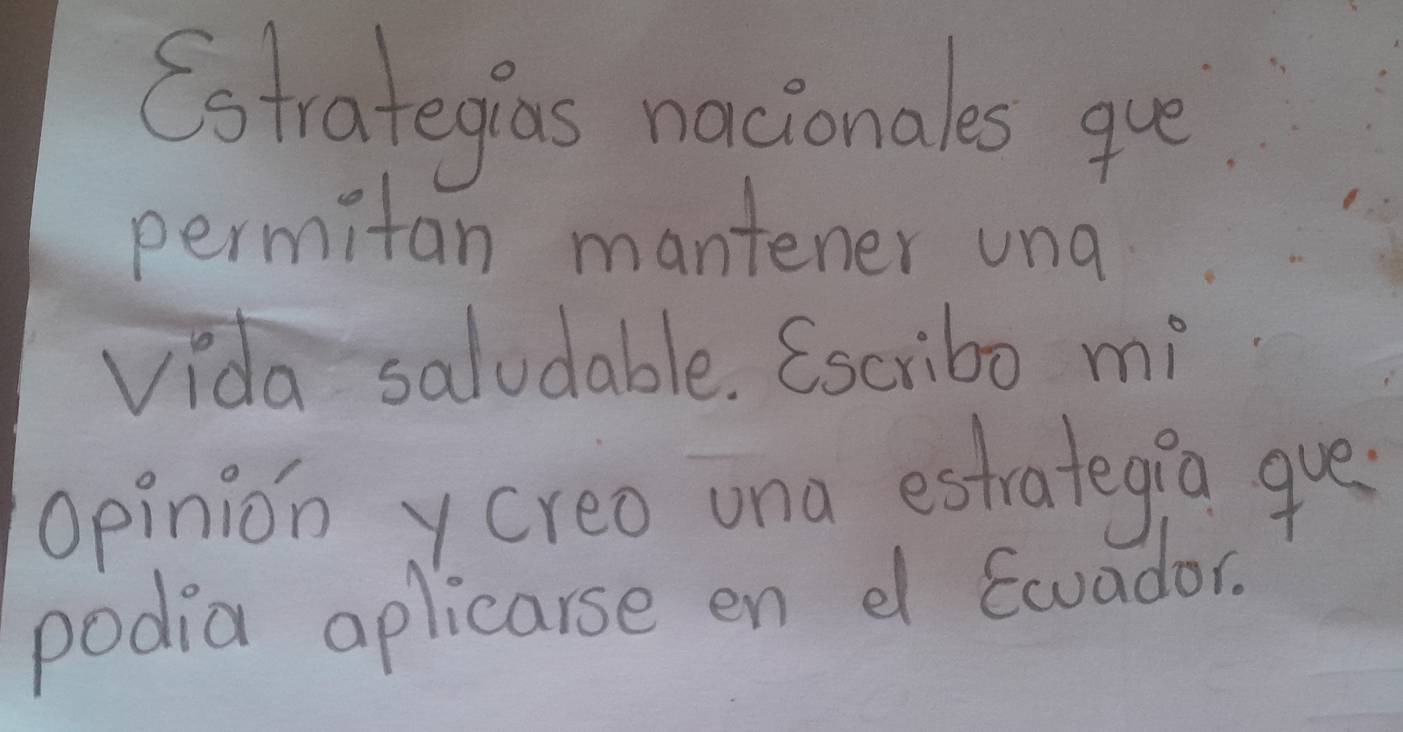 Estrategias nacionales que
permitan mantener una
vida saludable. Escribo mi
opinión y creo una estrategia que
podia aplicarse en el Ecuador.